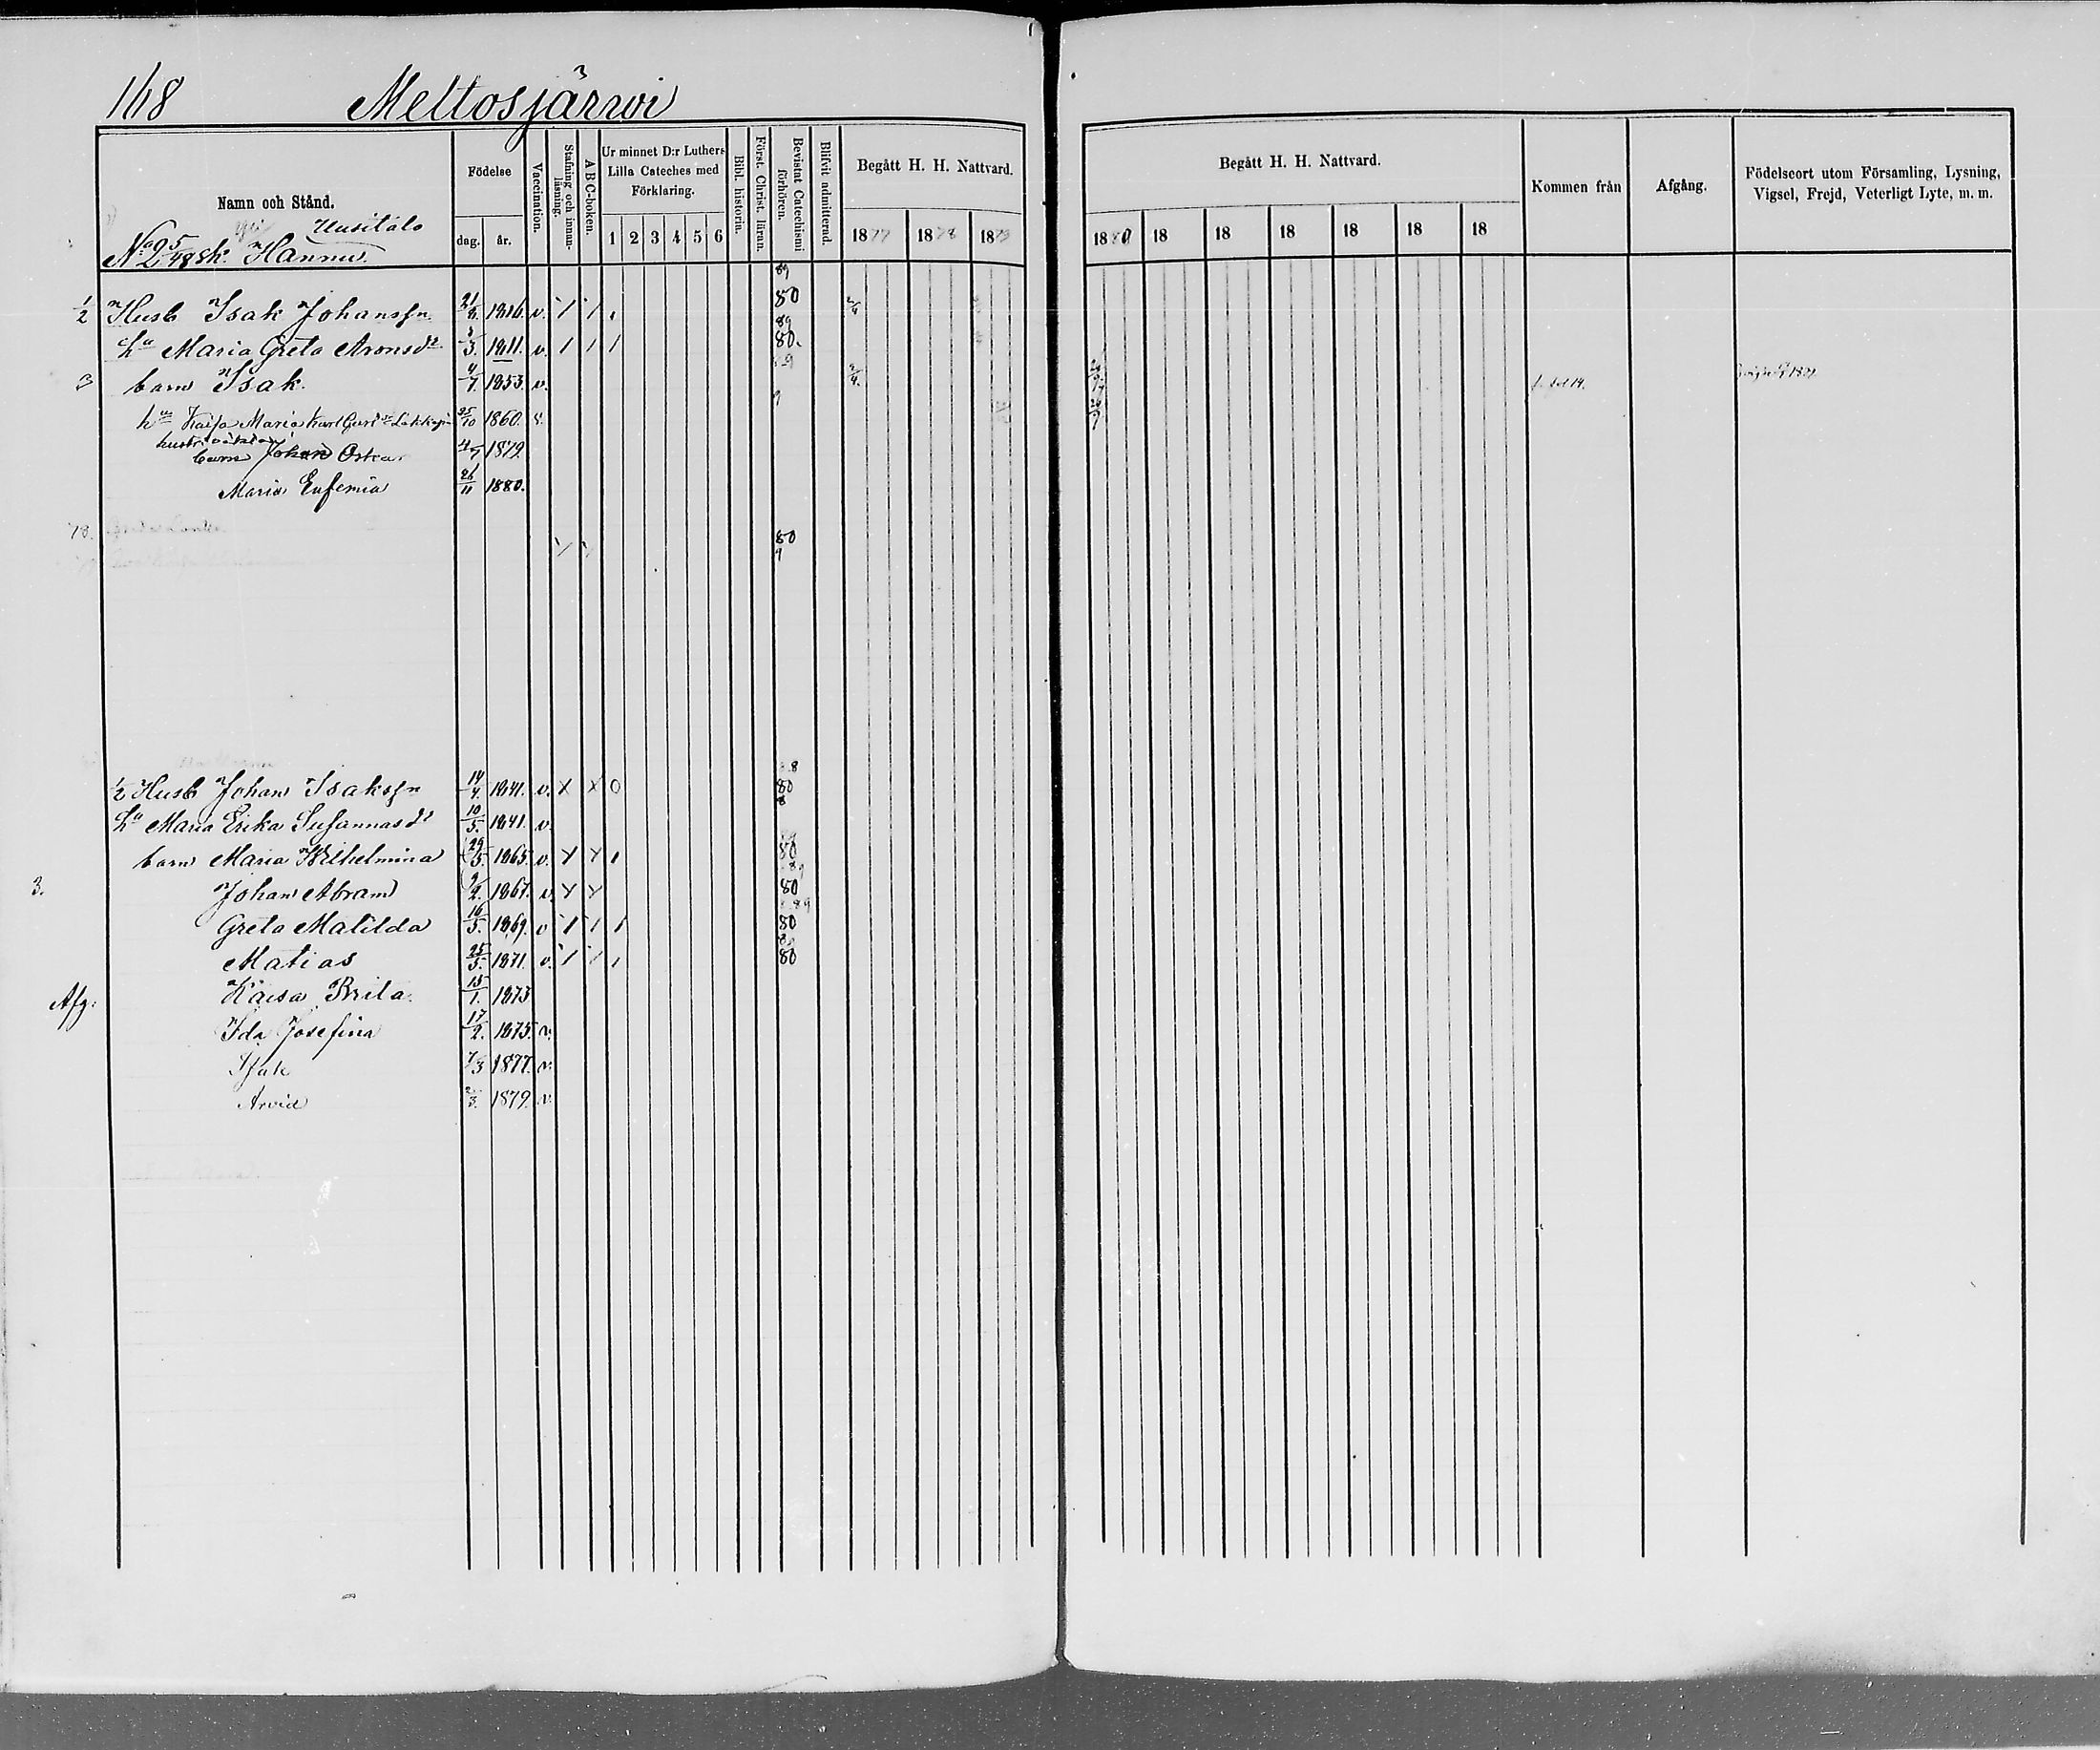 168 Meltosjärwi
Namn och Stånd.
Födelse
dag. år.
Vaccination.
Stafning och innan-läsning.
A B C-boken.
Ur minnet D:r Luthers Lilla Cateches med Förklaring.
1 2 3 4 5 6
Bibl. historia.
Först. Christ. läran.
Bevistat Catechismi förhören.
Blifvit admitterad.
Begått H. H. Nattvard.
1877 1878 1879
Begått H. H. Nattvard.
1880 18 18 18 18 18 18
Kommen från
Afgång.
Födelseort utom Församling, Lysning, Vigsel, Frejd, Veterligt Lyte, m. m.
Uusitalo
No 2 Hannu
1/2 Husb Isak Johansson 1816. v. 80
hu Maria Greta Aronsdr 1811. v. 80.
3 barn Isak 1853. v.
hu Kajsa Maria 25/10 1860.
barn Johan Oskar 1879
Maria Eufemia 26/11 1880.
78. 80
1/2 Husb Johan Isaksson 14/4. 1841. v. x x 0 80
hu Maria Erika Susannasdr 10/5. 1841. v.
barn Maria Wilhelmina 29/5. 1865. v. 80
3. Johan Abram 9/2. 1867. v. 80
Greta Matilda 16/5. 1869. v 80
Matias 25/5. 1871. v. 80
Afg: Kaisa Brita 15/1. 1873
Ida Josefina 17/2. 1875. v.
Isak 7/3 1877. v.
Arvid 1879. v.